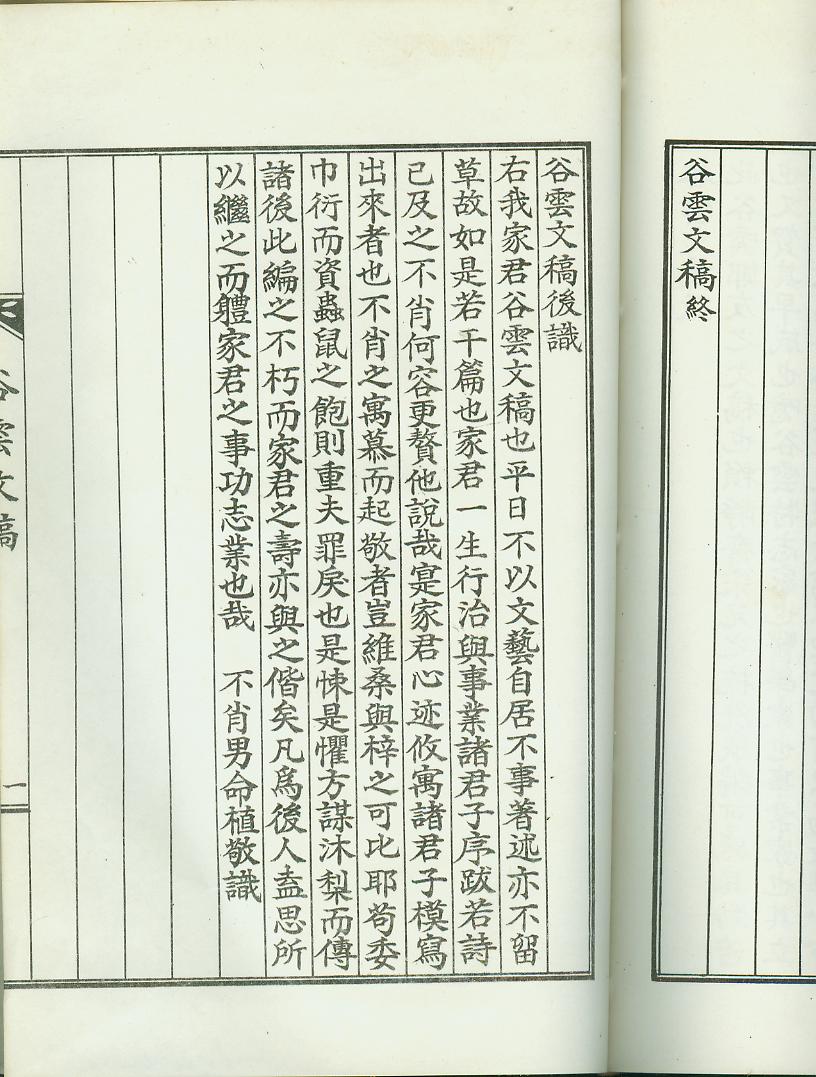 谷雲文稿終
谷雲文稿後識
右我家君谷雲文稿也平日不以文藝自居不事著述亦不留
草故如是若干篇也家君一生行治與事業諸君子序跋若詩
已及之不肖何容更贅他說哉寔家君心迹攸寓諸君子模寫
出來者也不肖之寓慕而起敬者豈維桑與梓之可比耶苟委
巾衍而資蟲鼠之飽則重夫罪戾也是悚是懼方謀沐梨而傳
諸後此編之不朽而家君之壽亦與之偕矣凡爲後人盍思所
以繼之而軆家君之事功志業也哉 不肖男命植敬識
谷雲文稿
一